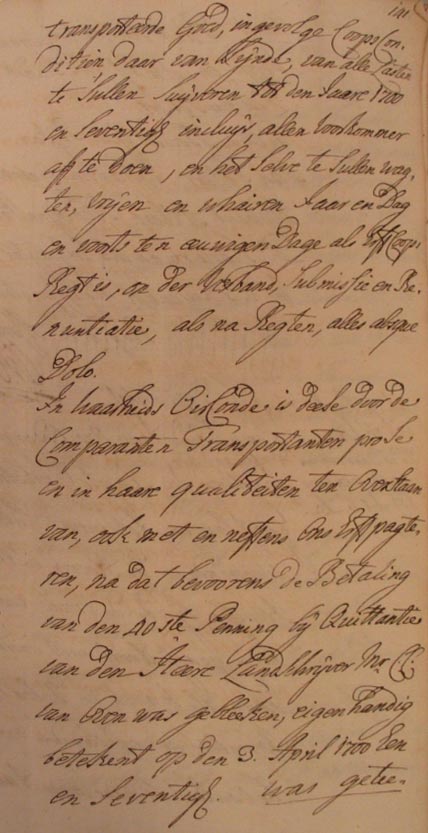 transporteerde Goed, ingevolge Coops Con-
ditien daar van zijnde, van alle Lasten
te Sullen Suijveren tot den Jaare 1700
en Seventich incluijs, allen voorkommer
af te doen, en het Selve te Sullen wag-
ten, vrijen en whairen Jaar en Dag
en voorts ten euwigen Dage als Erfcoops
Regt is, onder verband, Submissie en Re-
nuntiatie, als na Regten, alles absque
Dolo.
In waarheids Oirconde is deese door de
Comparanten Transportanten pro Se
en in haare qualiteiten ten Overstaan
van, ook met en neffens Ons Erfpagte-
ren, na dat bevoorens de Betaling
van den 40ste Penning bij Quittantie
van den Heere Landschrijver Mr C:
van Oven was gebleeken, eigenhandig
betekent op den 3. April 1700 Een
en Seventich. was getee-